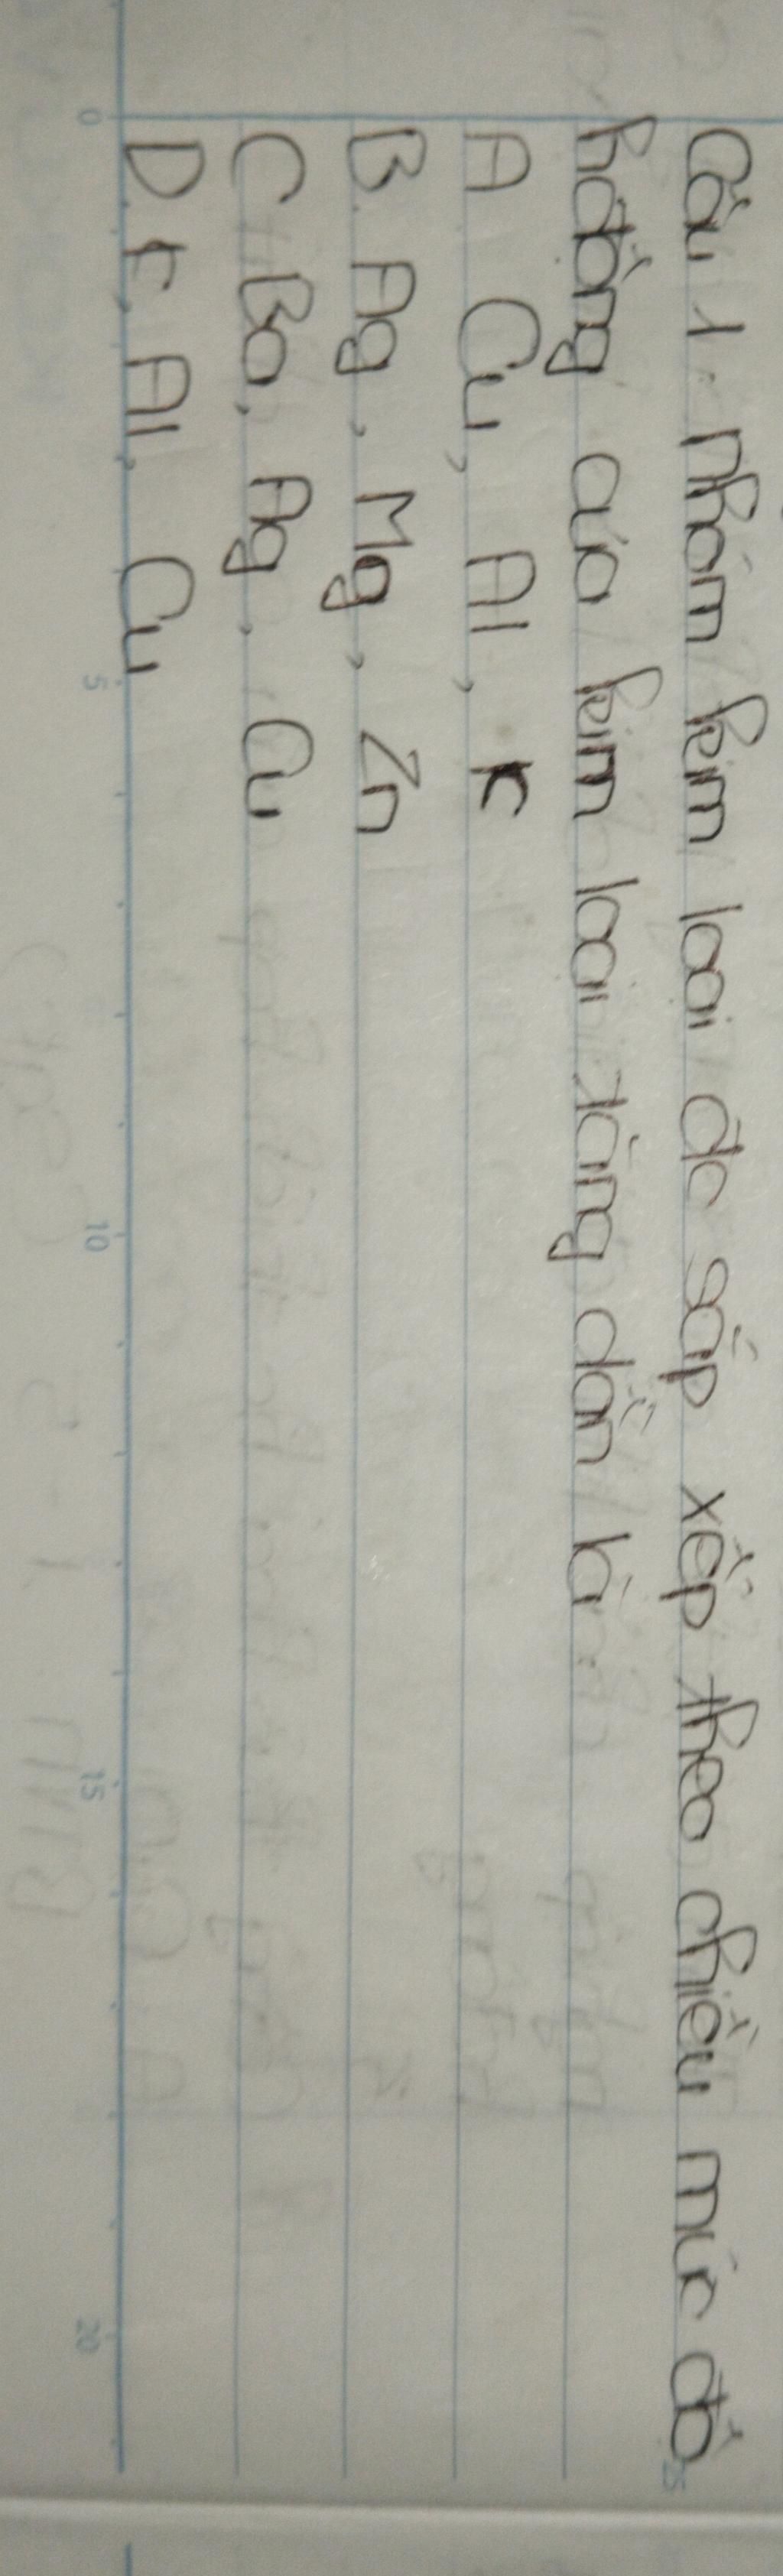 Câu 1. Nhóm kim loại đc sắp xếp theo chiều mức độ
h động của kim loại tăng dần là
A Cu, Al, K
B. Ag, Mg, Zn
C. Ba, Ag, Cu
D K, Al, Cu
0 5 10 15 20 25